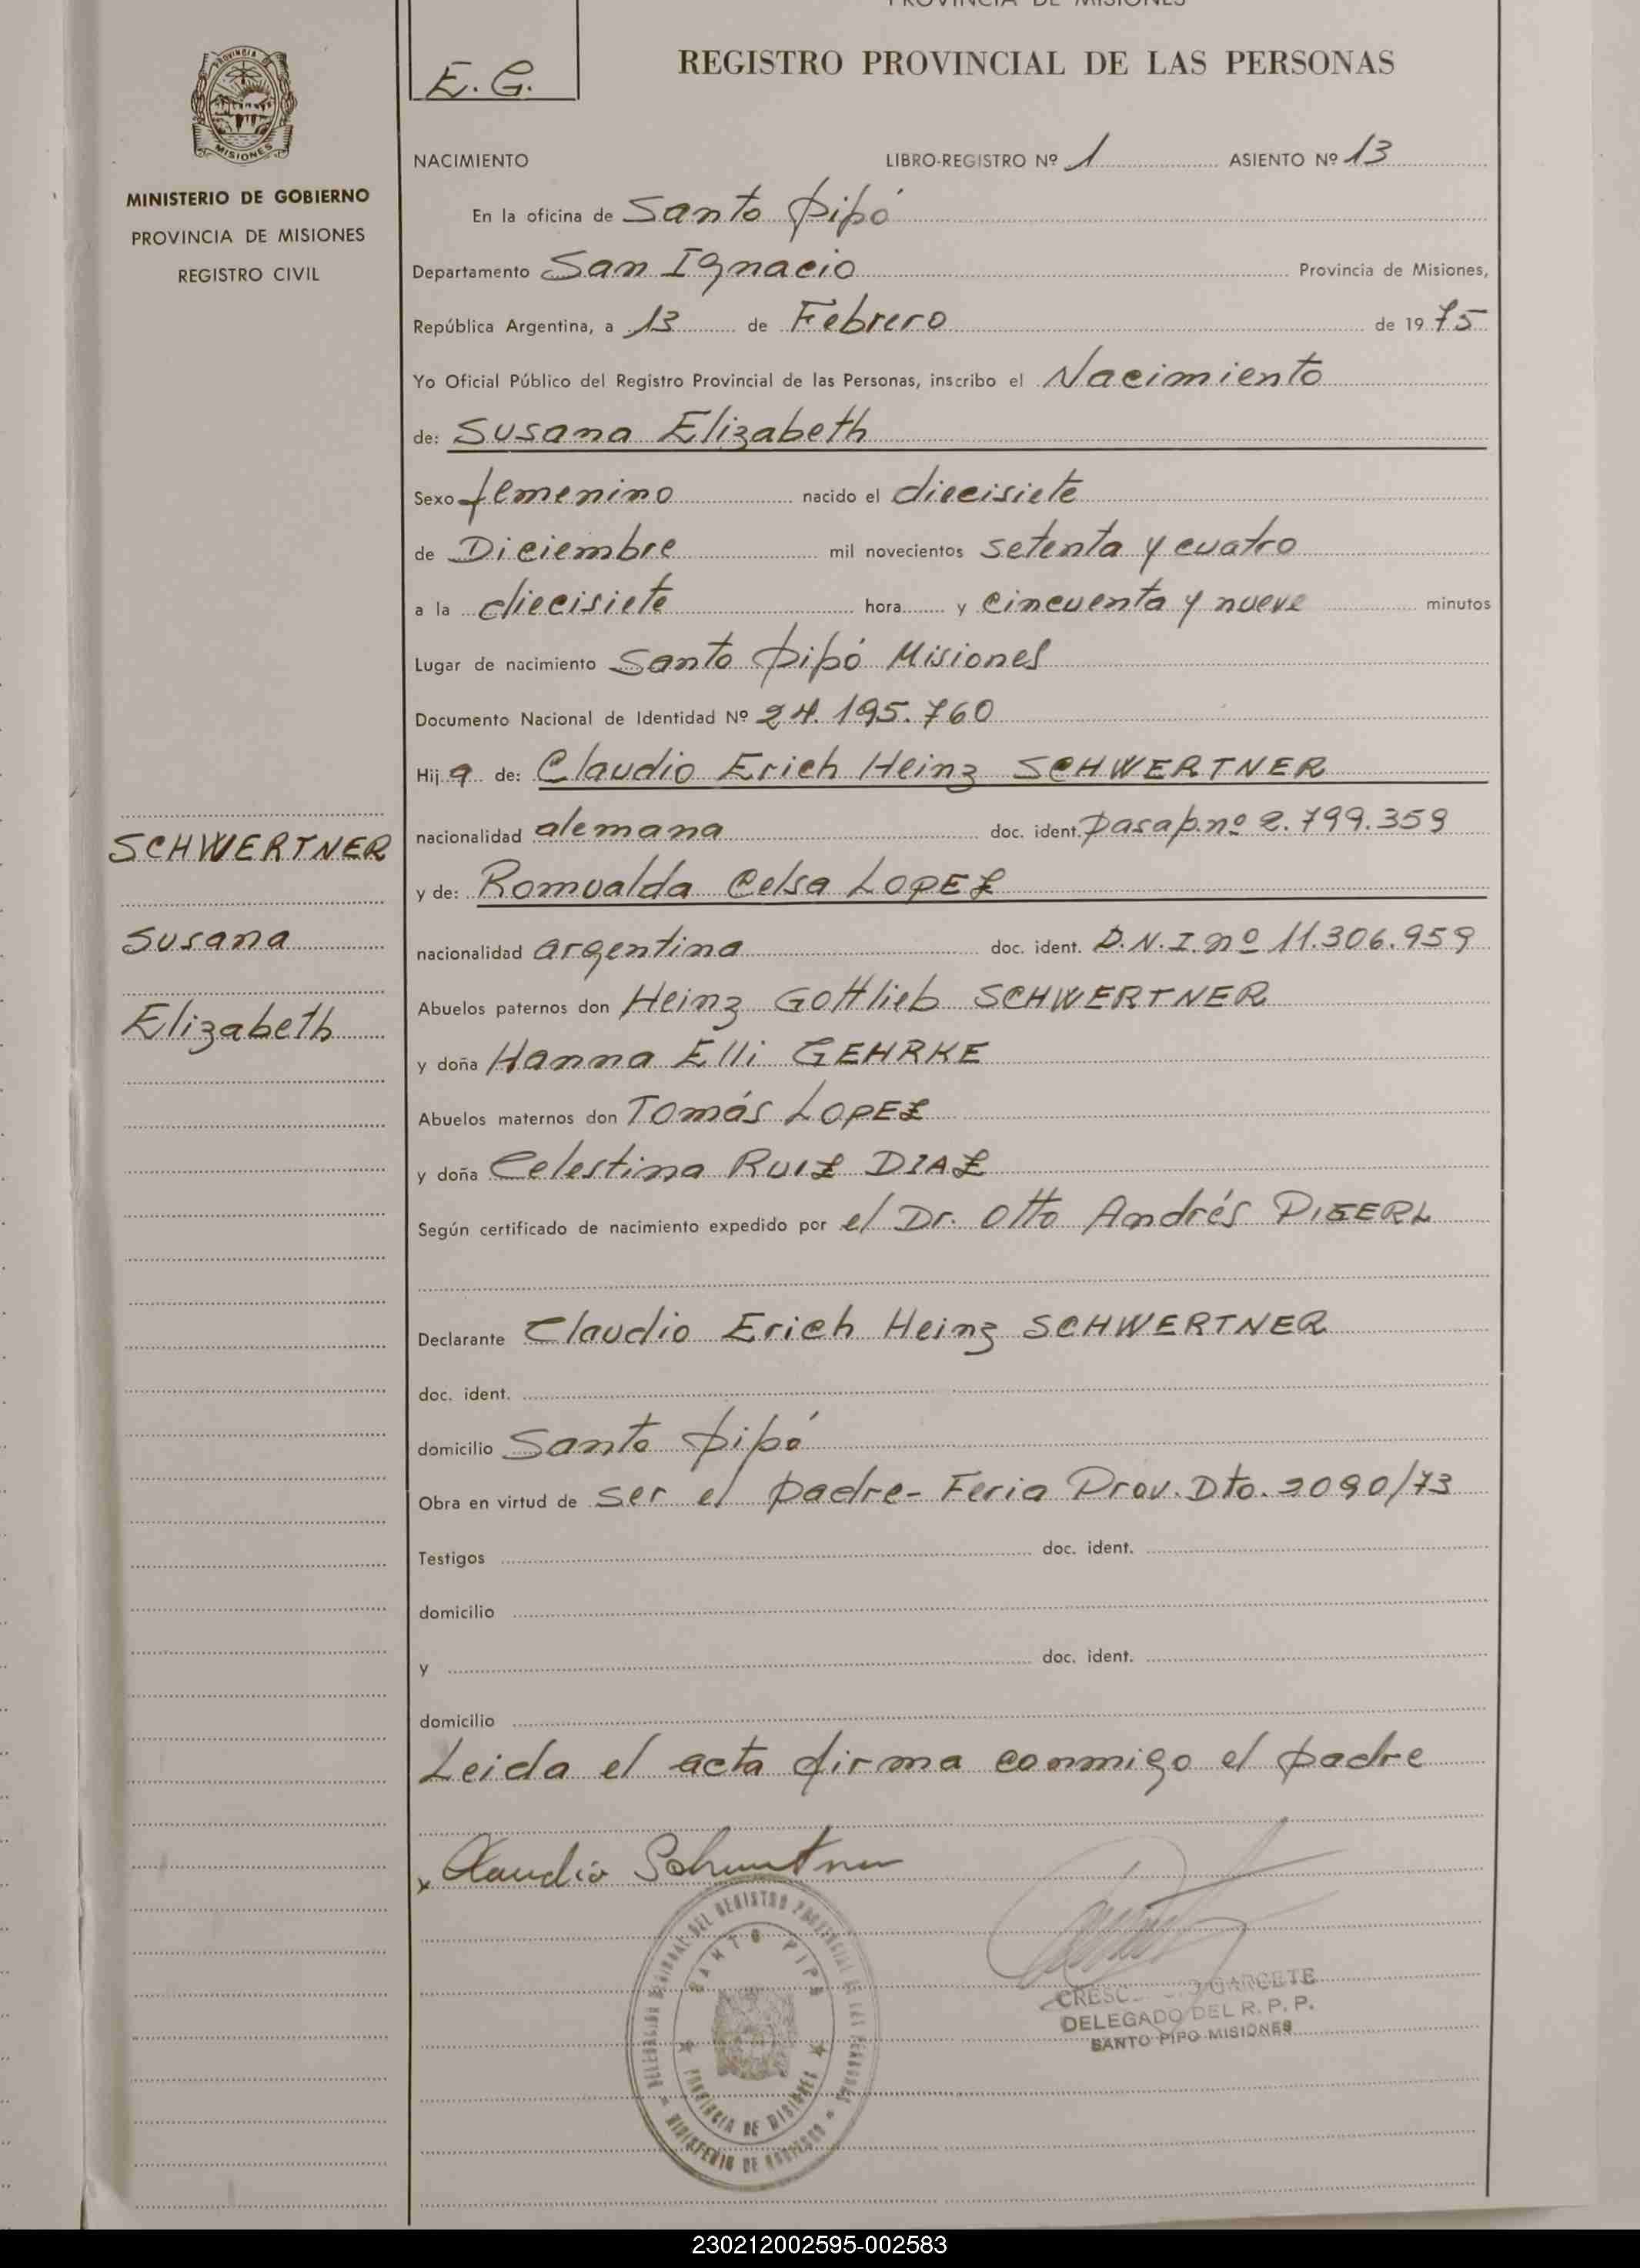 PROVINCIA DE MISIONES
E. G.
REGISTRO PROVINCIAL DE LAS PERSONAS
PROVINCIA DE
MISIONES
MINISTERIO DE GOBIERNO
PROVINCIA DE MISIONES
REGISTRO CIVIL
NACIMIENTO LIBRO-REGISTRO Nº 1 ASIENTO Nº 13
En la oficina de Santo Pipó
Departamento San Ignacio Provincia de Misiones,
República Argentina, a 13 de Febrero de 1975
Yo Oficial Público del Registro Provincial de las Personas, inscribo el Nacimiento
de: Susana Elizabeth
Sexo femenino nacido el diecisiete
de Diciembre mil novecientos setenta y cuatro
a la diecisiete hora y cincuenta y nueve minutos
Lugar de nacimiento Santo Pipó Misiones
Documento Nacional de Identidad Nº 24.195.760
Hija de: Claudio Erich Heinz SCHWERTNER
nacionalidad alemana doc. ident. Pasap. nº 2.799.359
y de: Romualda Celsa LOPEZ
nacionalidad argentina doc. ident. D.N.I. nº 11.306.959
Abuelos paternos don Heinz Gottlieb SCHWERTNER
y doña Hanna Elli GEHRKE
Abuelos maternos don Tomás LOPEZ
y doña Celestina RUIZ DIAZ
Según certificado de nacimiento expedido por el Dr. Otto Andrés
Declarante Claudio Erich Heinz SCHWERTNER
doc. ident.
domicilio Santo Pipó
Obra en virtud de ser el padre- Feria Prov. Dto. 2090/73
Testigos doc. ident.
domicilio
y doc. ident.
domicilio
Leida el acta firma conmigo el padre
x Claudio Schwertner
SCHWERTNER
Susana
Elizabeth
DELEGACION REGIONAL DEL REGISTRO PROVINCIAL DE LAS PERSONAS
SANTO PIPO
PROVINCIA DE MISIONES
MINISTERIO DE GOBIERNO
GARCETE
DELEGADO DEL R. P. P.
SANTO PIPO MISIONES
230212002595-002583